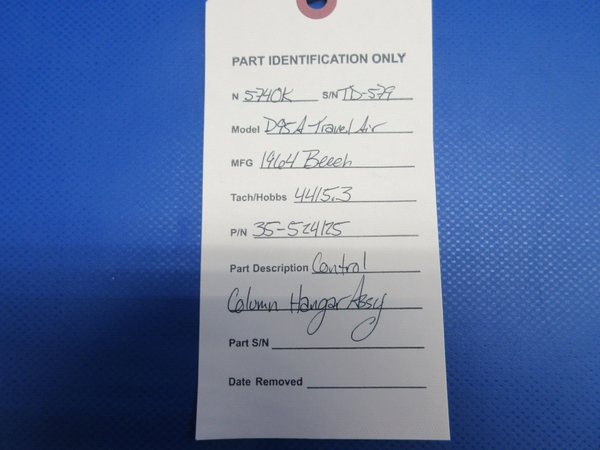 PART IDENTIFICATION ONLY
N 5740K S/N TD-579
Model D95A-Travel Air
MFG 1964 Beech
Tach/Hobbs 4415.3
P/N 35-524125
Part Description Control
Column Hangar Assy
Part S/N
Date Removed